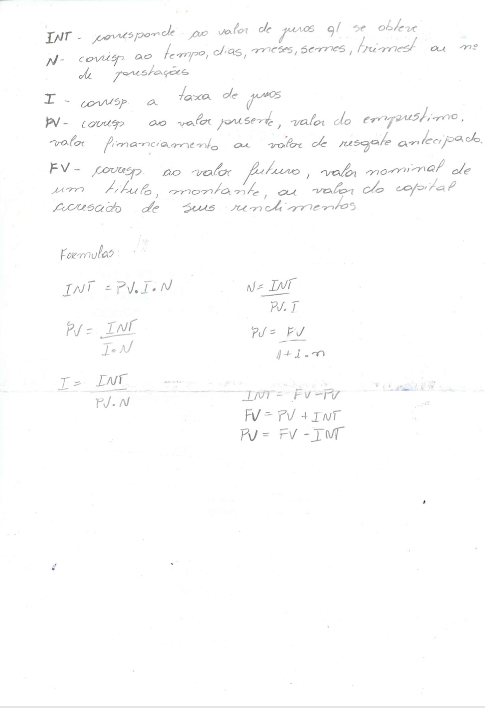 INT - corresponde ao valor de juros ql se obteve
N - corresp ao tempo, dias, meses, semes, trimest ou nº
de prestações
I - corresp a taxa de juros
PV - corresp ao valor presente, valor do emprestimo,
valor financiamento ou válor de resgate antecipado.
FV - corresp ao valor futuro, valor nominal de
um titulo, montante, ou valor do capital
acresido de seus rendimentos
Formulas:
INT = PV.I.N
N = INT / PV.I
PV = INT / I.N
PV = FV / 1+i.n
I = INT / PV.N
INT = FV-PV
FV = PV + INT
PV = FV - INT